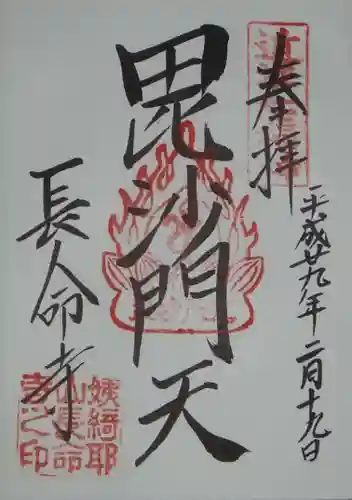 奉拝
平成廿九年 二月十九日
毘沙門天
長命寺
姨綺耶
山長命
寺之印